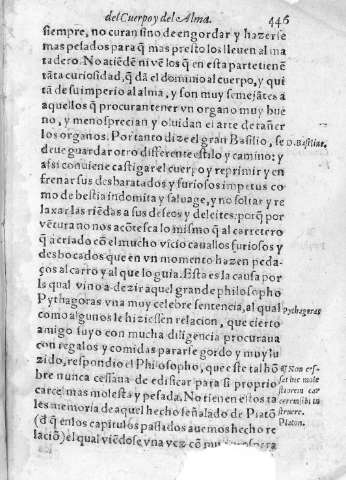 del Cuerpo y del Alma.
446
siempre, no curan sino de engordar y hazerse
mas pesados para q̃ mas presto los lleuen al ma
tadero. No atiẽdẽ ni vẽ los q̃ en esta parte tienẽ
tãta curiosidad, q̃ dã el dominio al cuerpo, y qui
tã de su imperio al alma, y son muy semejãtes à
aquellos q̃ procuran tener vn organo muy bue
no, y menosprecian y oluidan el arte de tañer
los organos. Por tanto dize el gran Basilio, se
D. Basilius.
deue guardar otro differente estilo y camino: y
assi conuiene castigar el cuerpo y reprimir y en
frenar sus desbaratados y furiosos impetus co
mo de bestia indomita y saluage, y no soltar y re
laxar las riẽdas a sus deseos y deleites: porq̃ por
vẽtura no nos acõtesca lo mismo q̃ al carretero
q̃ a criado con el mucho vicio cauallos furiosos y
desbocados que en vn momento hazen peda-
ços al carro y al que lo guia. Esta es la causa por
la qual vino a dezir aquel grande philosopho
Pythagoras vna muy celebre sentencia, al qual
Pythagoras
como algunos le hiziessen relacion, que cierto
amigo suyo con mucha diligencia procuraua
con regalos y comidas pararse gordo y muy lu
zido, respondio el Philosopho, que este tal hõ
bre nunca cessaua de edificar para si proprio
carcel mas molesta y pesada. No tienen estos ta
les memoria de aquel hecho señalado de Platõ
Non ces-
set hic mole
stiorem car
cerem sibi in
struere.
Platon.
(d̃ q̃ en los capitulos passados auemos hecho re
laciõ) el qual viẽdose vna vez cõ